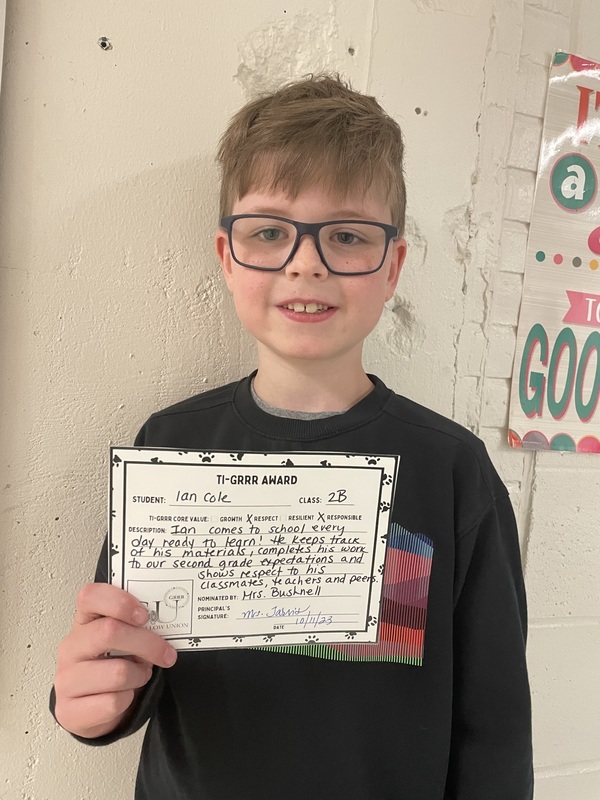 TI-GRRR AWARD
STUDENT: Ian Cole CLASS: 2B
TI-GRRR CORE VALUE: GROWTH X RESPECT RESILIENT X RESPONSIBLE
DESCRIPTION: Ian comes to school every
day ready to learn! He keeps track
of his materials, completes his work
to our second grade expectations and
shows respect to his
classmates, teachers and peers.
NOMINATED BY: Mrs. Bushnell
PRINCIPAL'S
SIGNATURE: Mr. Jarvis 10/11/23
DATE
GRRR
UNION
a
TO
GOO